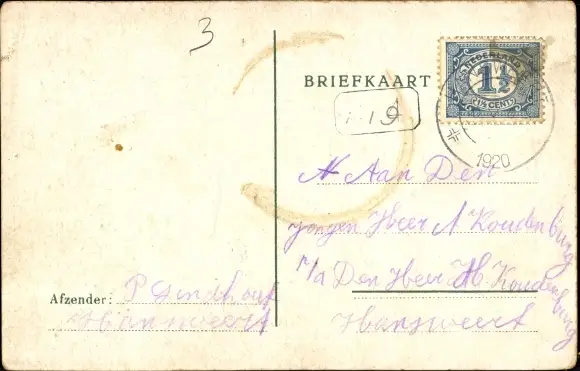 3
BRIEFKAART
NEDERLAND
1½
1½ CENT
1920
Aan Den
jongen Heer A Koudenburg
p/a Den Heer H Koudenburg
Hansweert
Afzender: P
Hansweert